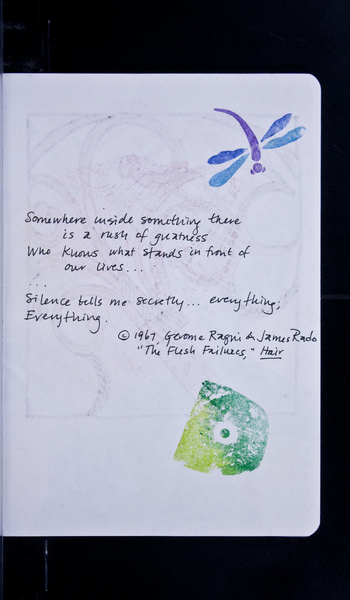 Somewhere inside something there
is a rush of greatness
Who knows what stands in front of
our lives...
...
Silence tells me secretly... everything,
Everything.
© 1967, Gerome Ragni & James Rado
"The Flesh Failures," Hair